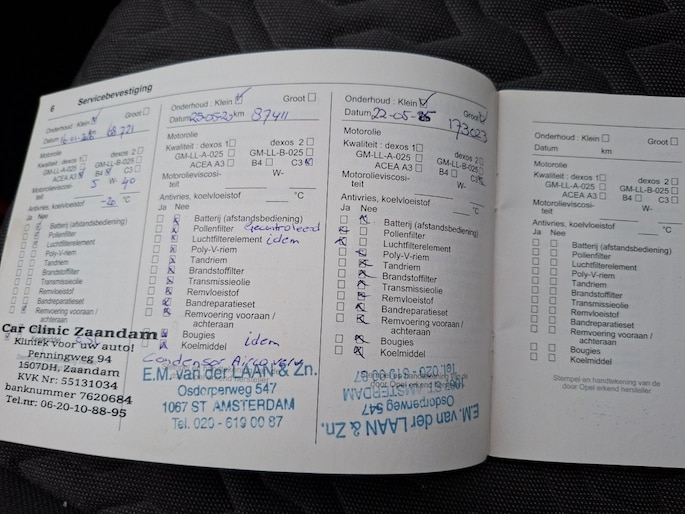 6 Servicebevestiging
Onderhoud : Klein
Datum km 68.721
Motorolie
Kwaliteit : dexos 1 dexos 2
GM-LL-A-025 GM-LL-B-025
ACEA A3 B4 C3
Motorolieviscosi- 5 W- 40
teit
Antivries, koelvloeistof -20 °C
Ja Nee
Batterij (afstandsbediening)
Pollenfilter
Luchtfilterelement
Poly-V-riem
Tandriem
Brandstoffilter
Transmissieolie
Remvloeistof
Bandreparatieset
Remvoering vooraan /
achteraan
Car Clinic Zaandam
Kliniek voor uw auto!
Penningweg 94
1507DH, Zaandam
KVK Nr: 55131034
banknummer 7620684
Tel.nr: 06-20-10-88-95
Onderhoud : Klein Groot
Datum km 87411
Motorolie
Kwaliteit : dexos 1 dexos 2
GM-LL-A-025 GM-LL-B-025
ACEA A3 B4 C3
Motorolieviscosi- W-
teit
Antivries, koelvloeistof °C
Ja Nee
Batterij (afstandsbediening)
Pollenfilter
Luchtfilterelement idem
Poly-V-riem
Tandriem
Brandstoffilter
Transmissieolie
Remvloeistof
Bandreparatieset
Remvoering vooraan /
achteraan
Bougies idem
Koelmiddel
Condensor
E.M. van der LAAN & Zn.
Osdorperweg 547
1067 ST AMSTERDAM
Tel. 020 - 619 00 87
Onderhoud : Klein Groot
Datum 22-05- km 173023
Motorolie
Kwaliteit : dexos 1 dexos 2
GM-LL-A-025 GM-LL-B-025
ACEA A3 B4 C3
Motorolieviscosi- W-
teit
Antivries, koelvloeistof °C
Ja Nee
Batterij (afstandsbediening)
Pollenfilter
Luchtfilterelement
Poly-V-riem
Tandriem
Brandstoffilter
Transmissieolie
Remvloeistof
Bandreparatieset
Remvoering vooraan /
achteraan
Bougies
Koelmiddel
E.M. van der LAAN & Zn.
Osdorperweg 547
1067 ST AMSTERDAM
Tel. 020 - 619 00 87
Onderhoud : Klein Groot
Datum km
Motorolie
Kwaliteit : dexos 1 dexos 2
GM-LL-A-025 GM-LL-B-025
ACEA A3 B4 C3
Motorolieviscosi- W-
teit
Antivries, koelvloeistof °C
Ja Nee
Batterij (afstandsbediening)
Pollenfilter
Luchtfilterelement
Poly-V-riem
Tandriem
Brandstoffilter
Transmissieolie
Remvloeistof
Bandreparatieset
Remvoering vooraan /
achteraan
Bougies
Koelmiddel
Stempel en handtekening van de
door Opel erkend hersteller